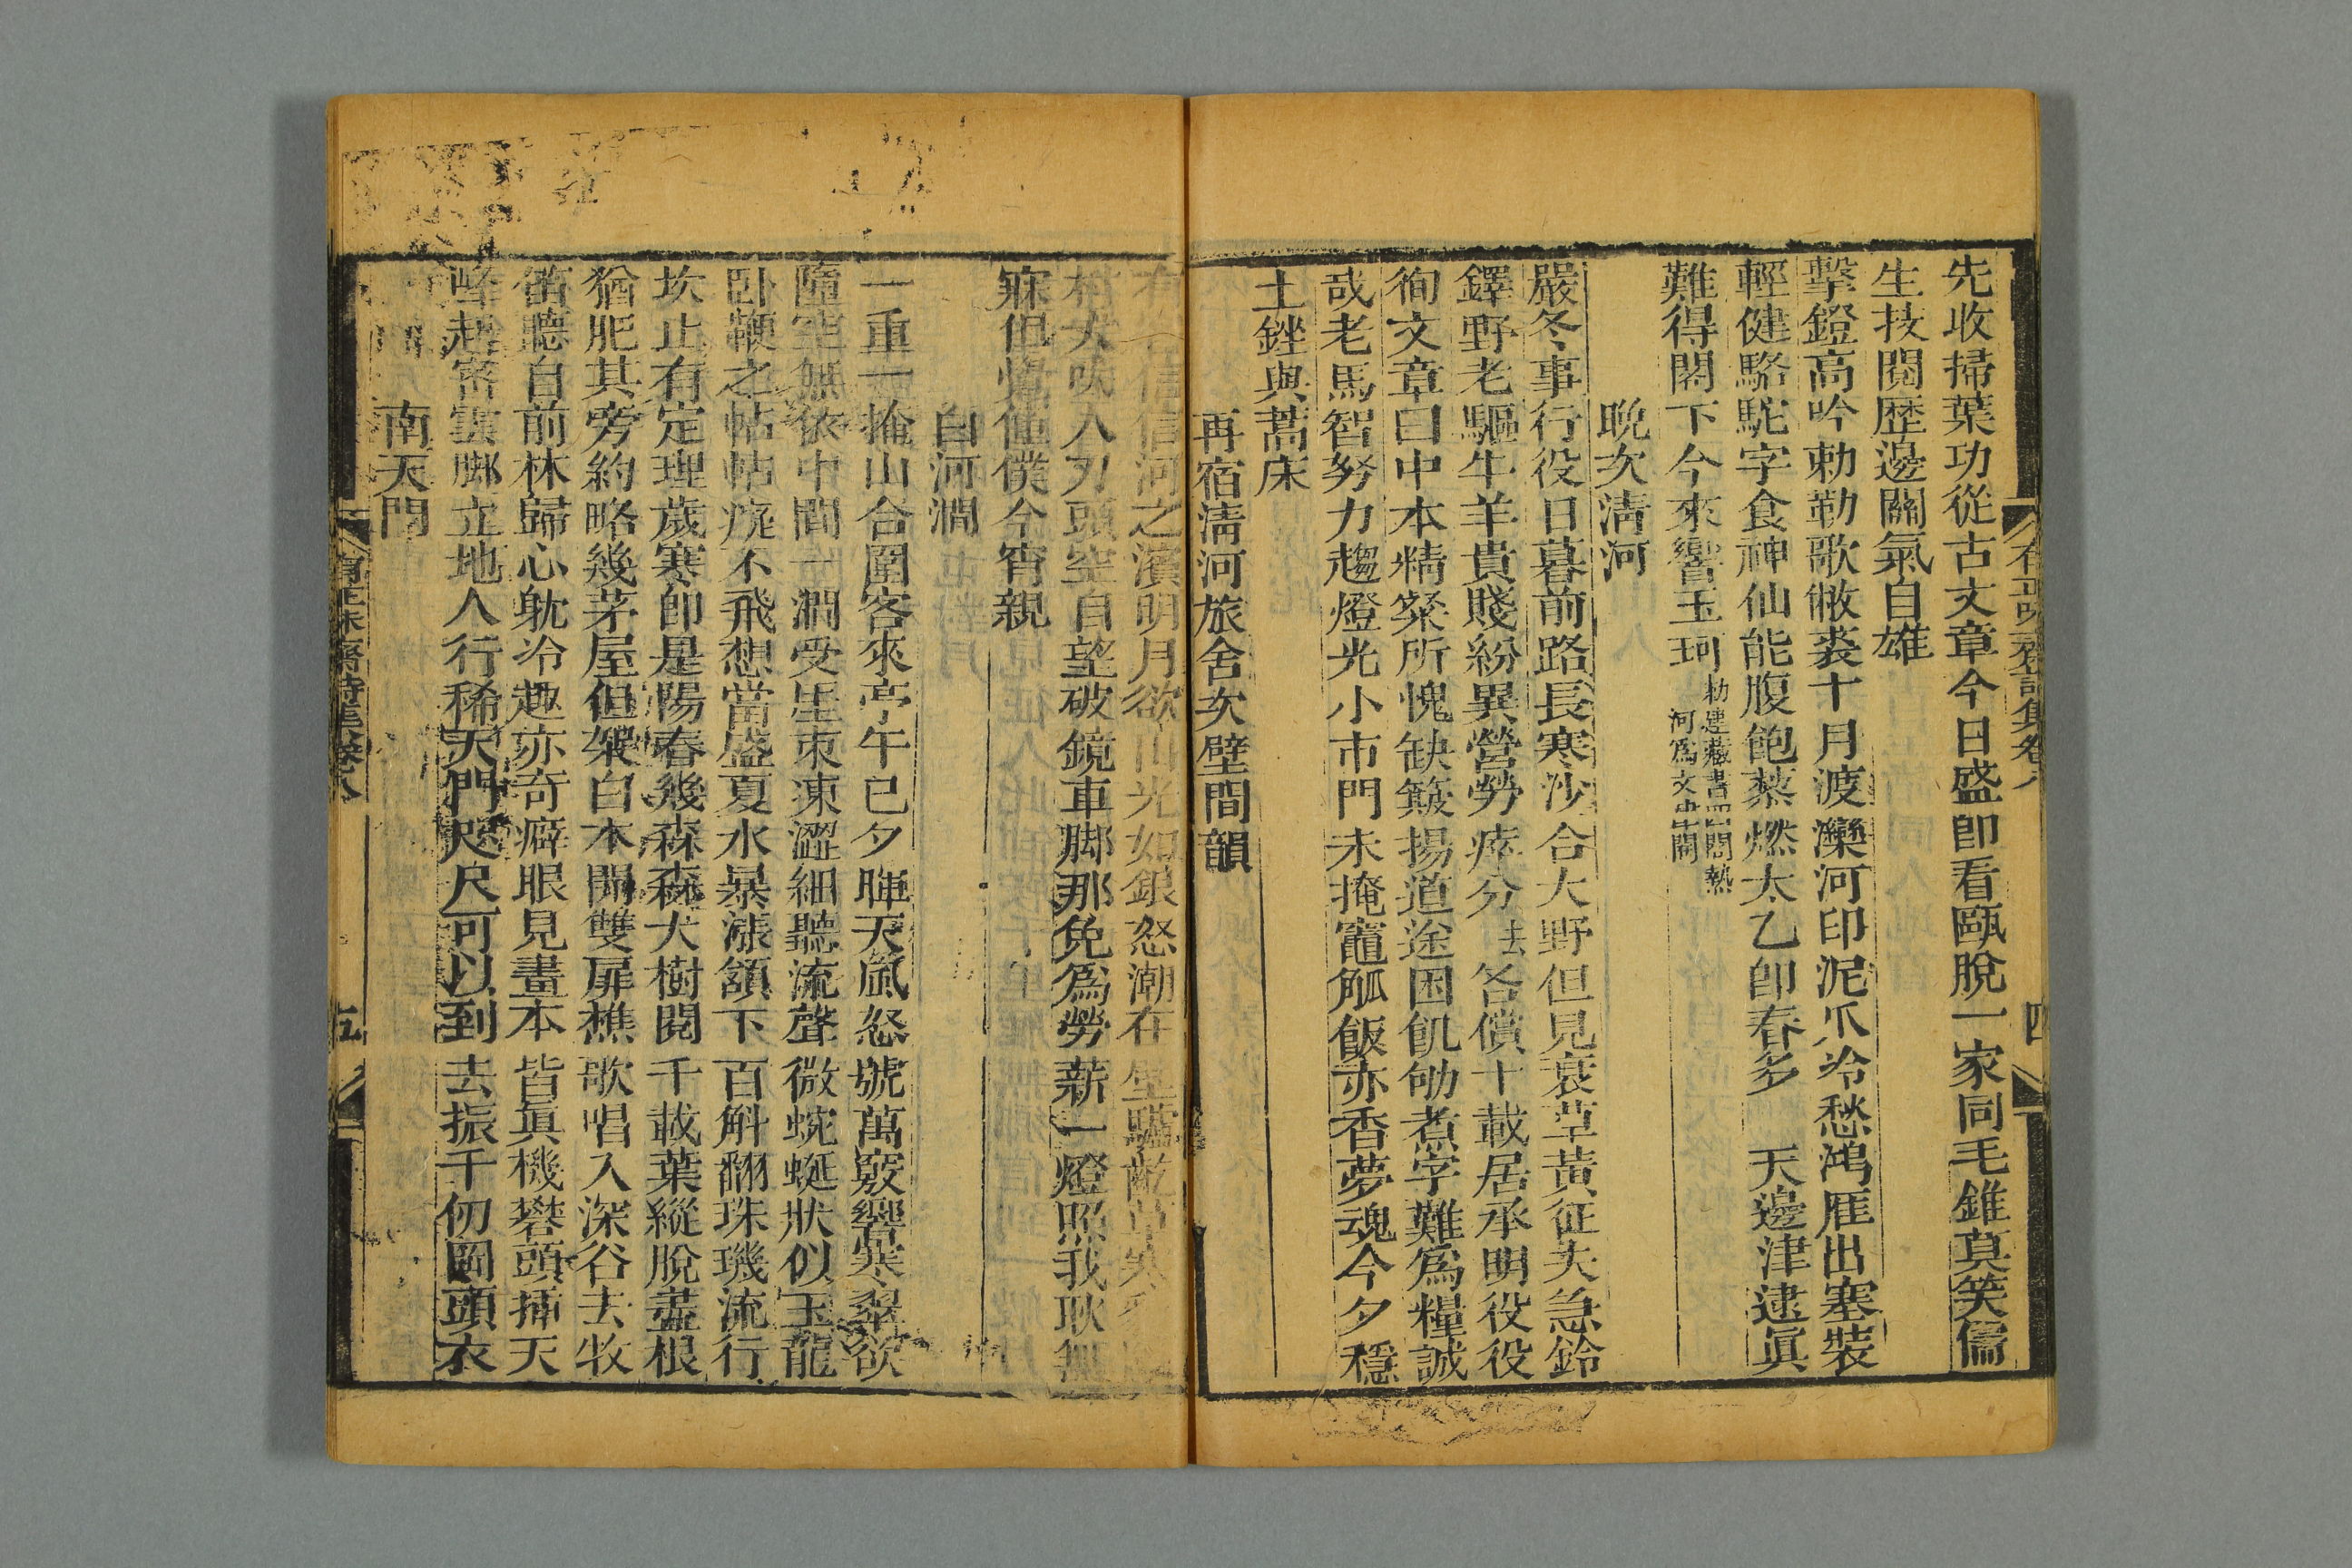 先收掃葉功從古文章今日盛卽看甌脫一家同毛錐莫笑儒
生技閱歷邊關氣自雄
擊鐙高吟勅勒歌敝裘十月渡灤河印泥爪冷愁鴻雁出塞裝
輕健駱駝字食神仙能腹飽藜燃太乙卽春多 天邊津逮眞
難得閣下今來響玉珂
晚次淸河
嚴冬事行役日暮前路長寒沙合大野但見衰草黃征夫急鈴
鐸野老驅牛羊貴賤紛異營勞瘁分去各償十載居承明役役
徇文章曰中本精粲所愧缺簸揚道途困飢劬煮字難爲糧誠
哉老馬智努力趨燈光小市門未掩竈觚飯亦香夢魂今夕穩
土銼與蒿床
再宿淸河旅舍次壁間韻
信信河之濱明月欲 光如銀怒潮在 驢齕草寒
村犬吠人刀頭空自望破鏡車脚那免爲勞薪一燈照我耿無
寐但覺僮僕今宵親
白河澗
一重一掩山合圍客來亭午已夕暉天風怒號萬竅響寒翠欲
墮空無依中間一澗受里束凍澀細聽流聲微蜿蜒狀似玉龍
卧鞭之帖帖疲不飛想當盛夏水暴漲頷下百斛翻珠璣流行
坎止有定理歲寒卽是陽春幾森森大樹閱千載葉縱脫盡根
猶肥其旁約略幾茅屋但架白本開雙扉樵歌唱入深谷去牧
笛聽自前林歸心躭冷趣亦奇癖眼見畫本皆眞機礬頭揷天
峰起 雲脚立地人行稀天門咫尺可以到去振千仞岡頭衣
南天門
有正味齋詩集卷八
四
有正味齋詩集卷八
五